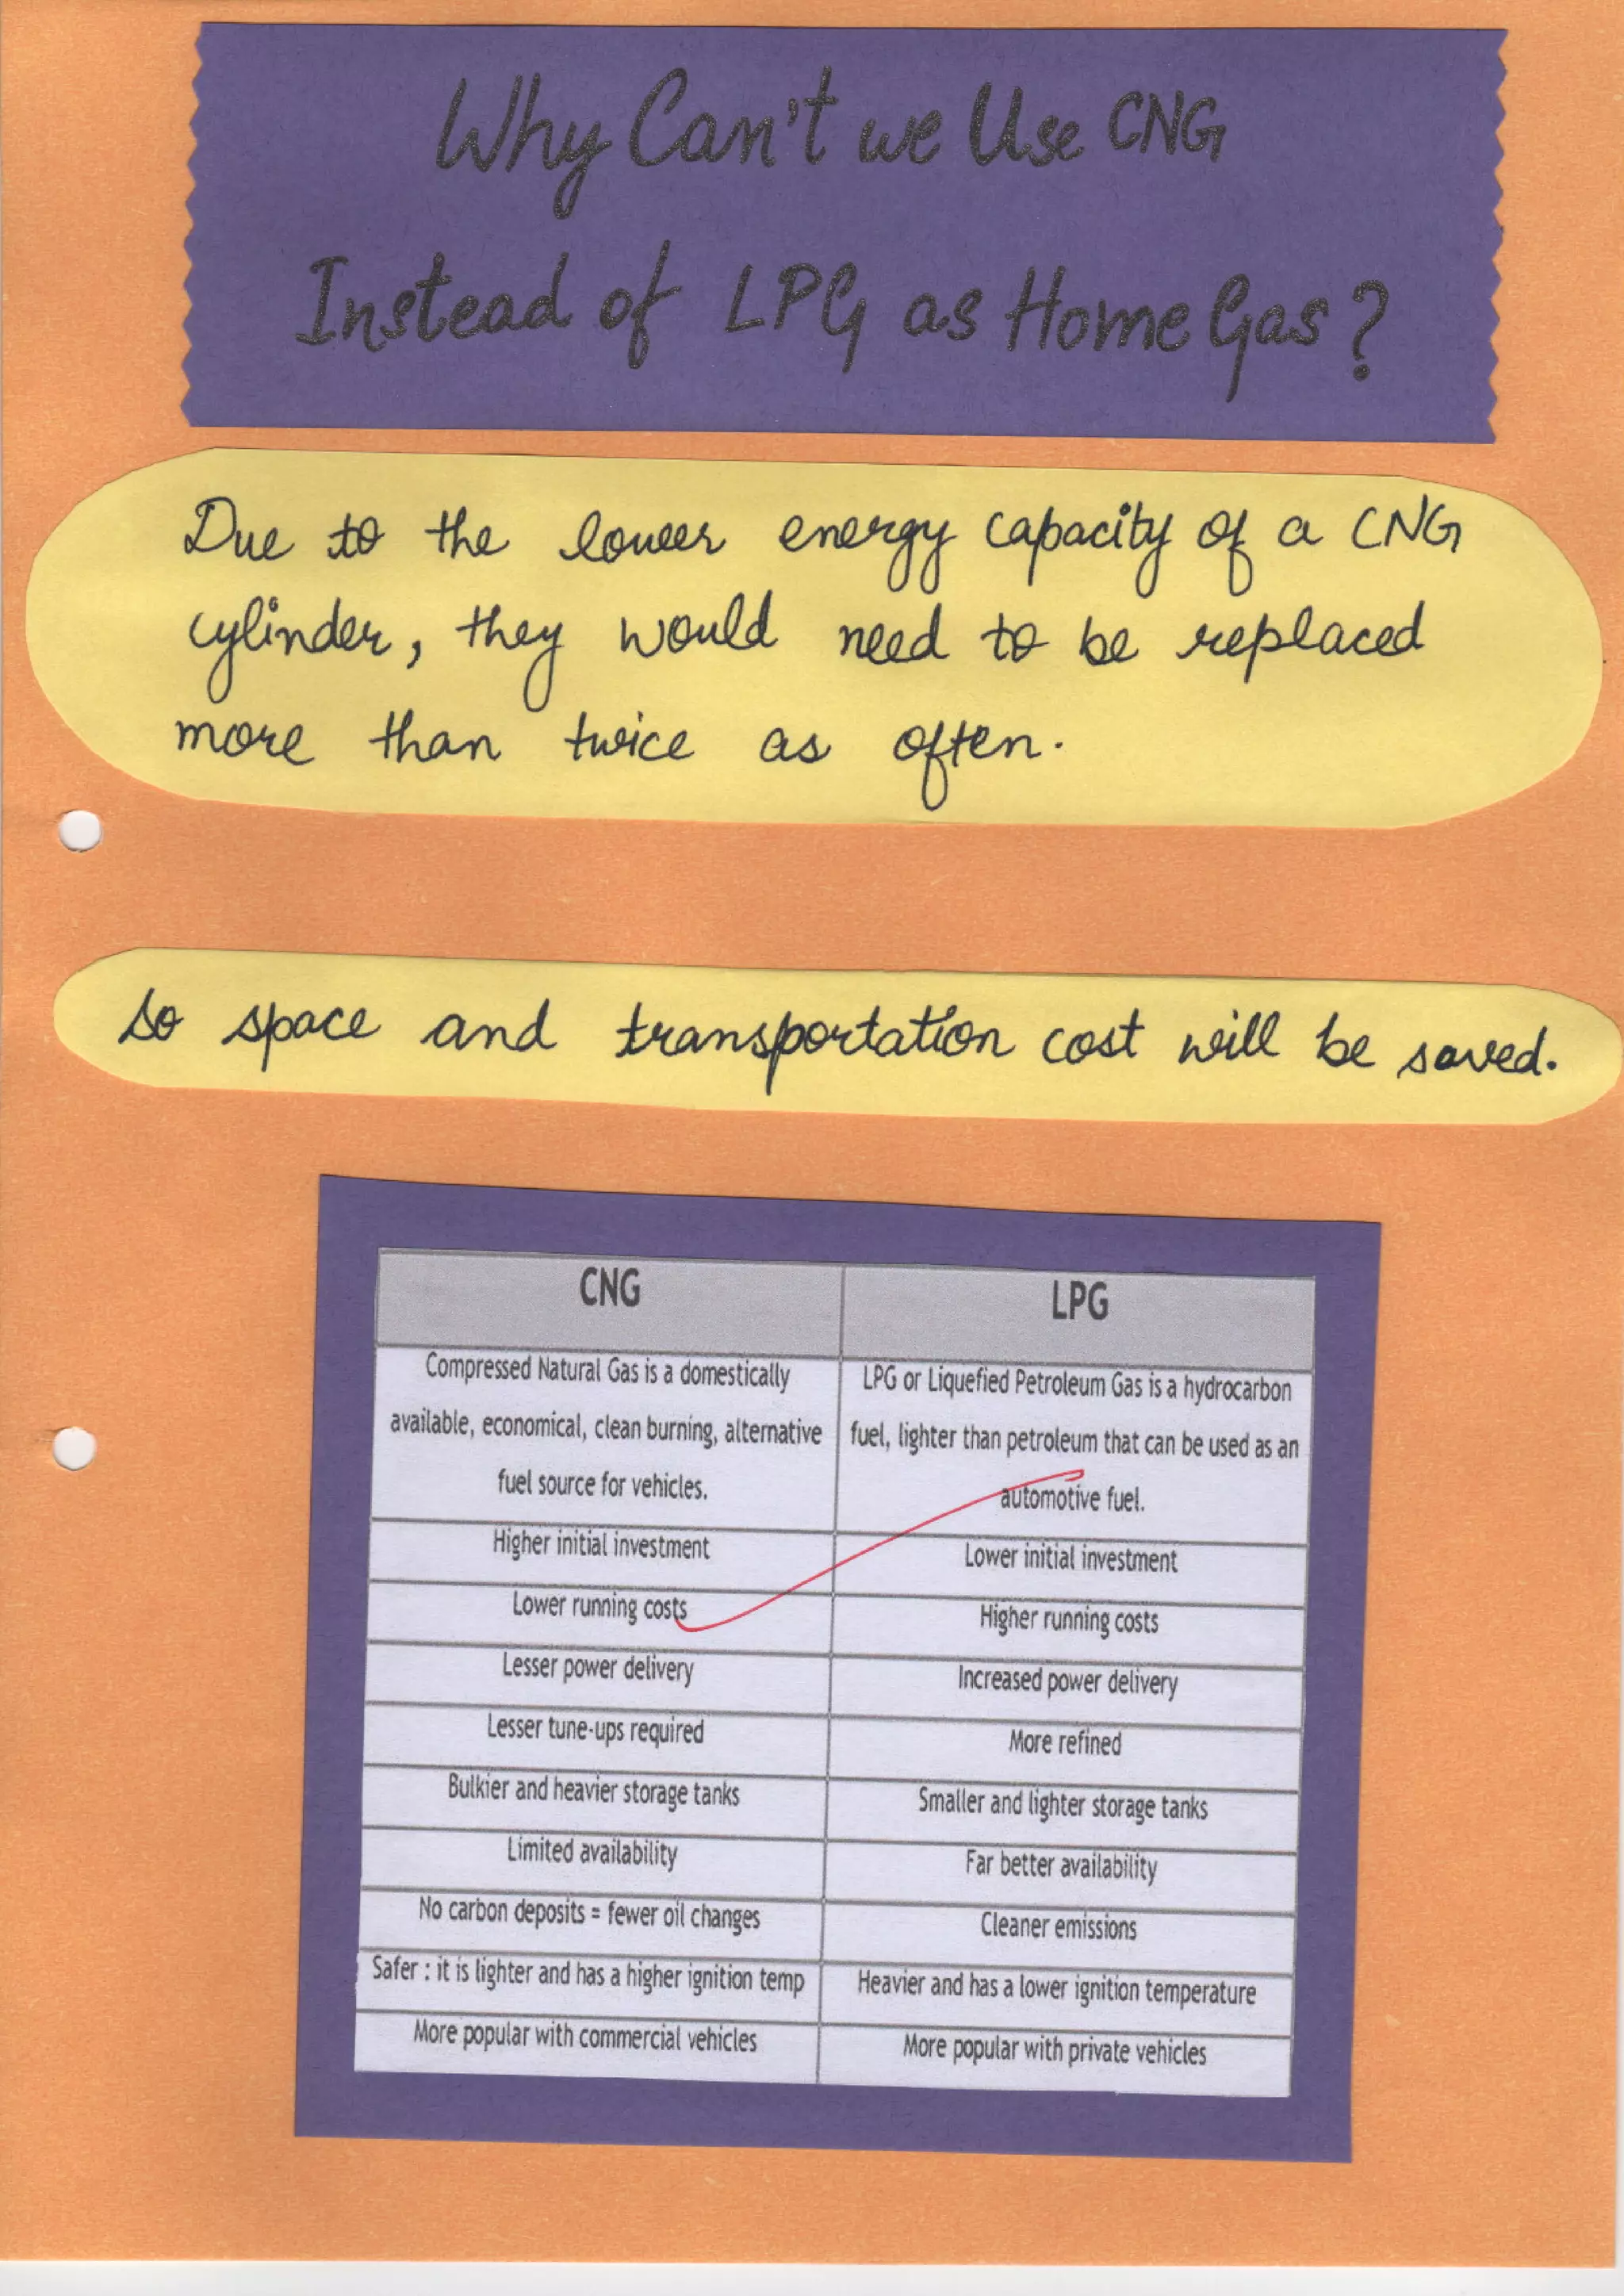 Why Can't we Use CNG
Instead of LPG as Home Gas?
Due to the lower energy capacity of a CNG
cylinder, they would need to be replaced
more than twice as often.
So space and transportation cost will be saved.
CNG
LPG
Compressed Natural Gas is a domestically
available, economical, clean burning, alternative
fuel source for vehicles.
LPG or Liquefied Petroleum Gas is a hydrocarbon
fuel, lighter than petroleum that can be used as an
automotive fuel.
Higher initial investment
Lower initial investment
Lower running costs
Higher running costs
Lesser power delivery
Increased power delivery
Lesser tune-ups required
More refined
Bulkier and heavier storage tanks
Smaller and lighter storage tanks
Limited availability
Far better availability
No carbon deposits = fewer oil changes
Cleaner emissions
Safer : it is lighter and has a higher ignition temp
Heavier and has a lower ignition temperature
More popular with commercial vehicles
More popular with private vehicles